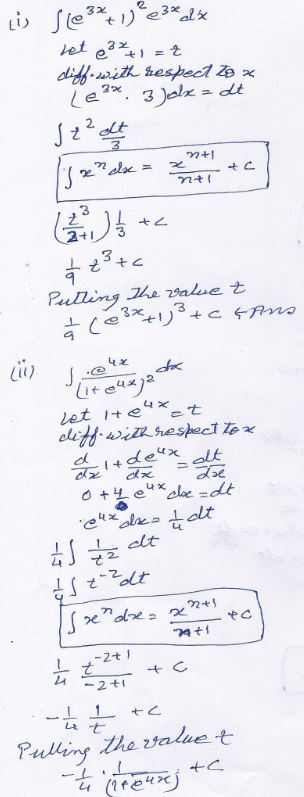 (i) ∫(e^{3x}+1)^2 e^{3x} dx
Let e^{3x}+1 = t
diff. with respect to x
(e^{3x}. 3)dx = dt
∫ t^2 dt/3
∫x^n dx = x^{n+1}/n+1 + c
(t^3/2+1) 1/3 + c
1/9 t^3 + c
Putting the value t
1/9 (e^{3x}+1)^3 + c ← Ans
(ii) ∫ e^{4x}/(1+e^{4x})^2 dx
Let 1+e^{4x} = t
diff. with respect to x
d/dx 1 + de^{4x}/dx = dt/dx
0 + 4 e^{4x} dx = dt
e^{4x} dx = 1/4 dt
1/4 ∫ 1/t^2 dt
1/4 ∫ t^{-2} dt
∫x^n dx = x^{n+1}/n+1 + c
1/4 t^{-2+1}/-2+1 + c
-1/4 1/t + c
Putting the value t
-1/4 . 1/(1+e^{4x}) + c